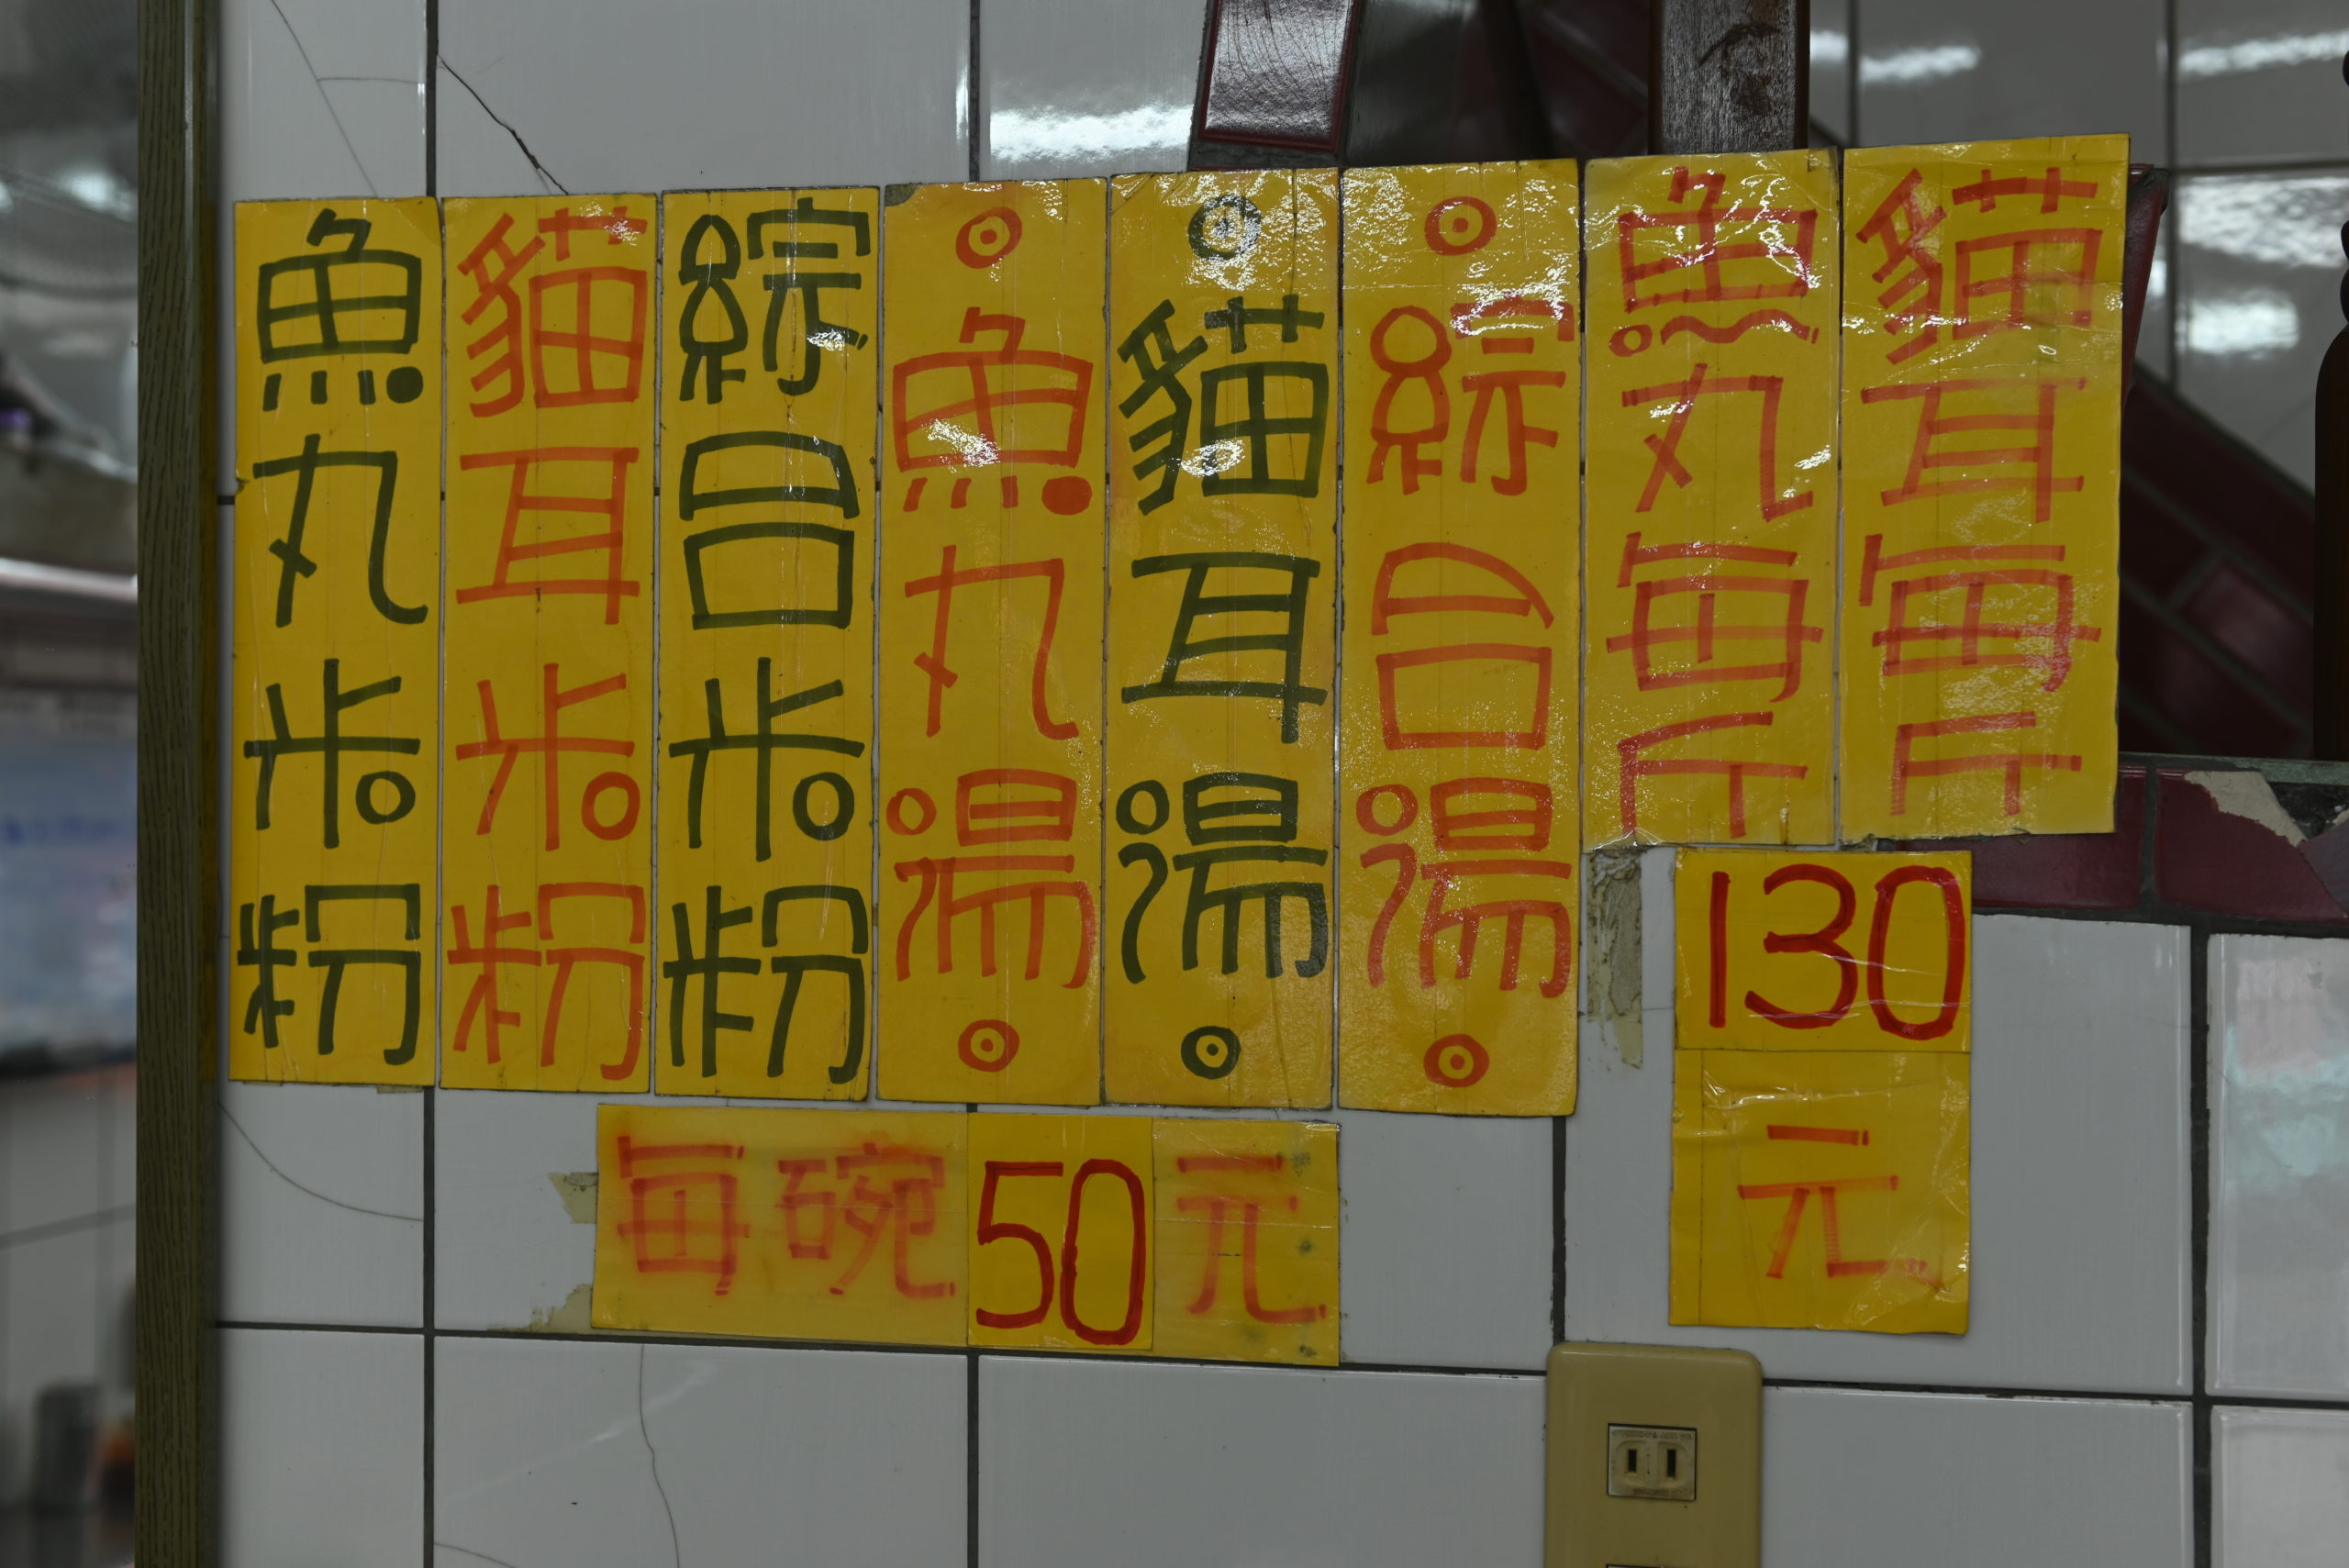 魚丸米粉
貓耳米粉
綜合米粉
魚丸湯
貓耳湯
綜合湯
魚丸每斤
貓耳每斤
130
元
每碗50元